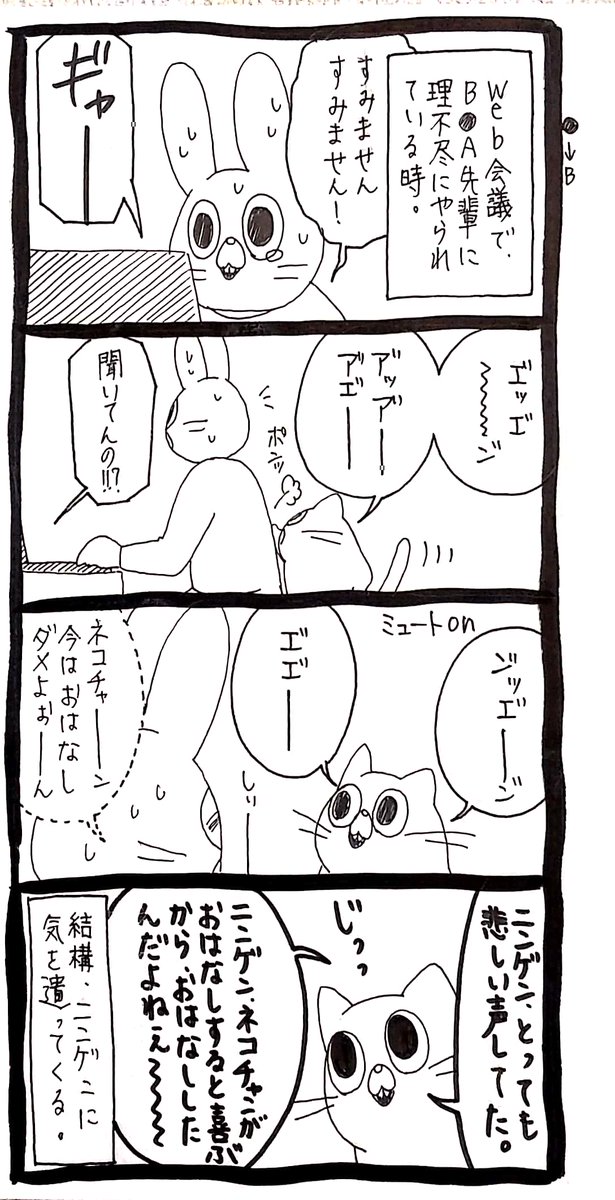 Web会議で、
B●A先輩に
理不尽にやられ
ている時。
●→B
すみません
すみません!
ギャーー
エ゛ッエ゛
〜〜〜ジ
ア゛ッア゛ー!
ア゛エ゛ーー
ポンッ
聞いてんの!!?
ミュートon
ジッエ゛ーージ
エ゛エ゛ーー
しーッ
ネコチャーーン
今はおはなし
ダメよぉーーん
ニンゲン、とっても
悲しい声してた。
じっっ
ニンゲン、ネコチャンが
おはなしすると喜ぶ
から、おはなしした
んだよねぇ〜〜〜
結構、ニンゲンに
気を遣ってくる。